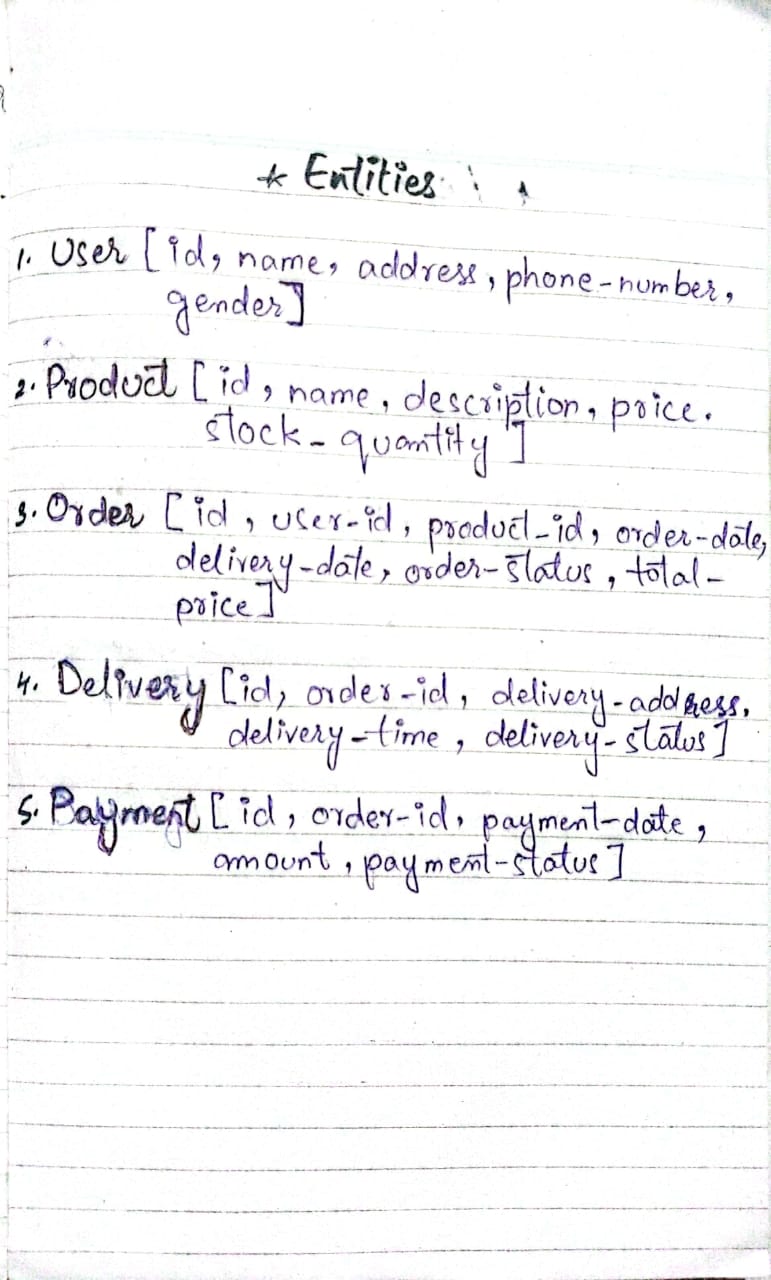 * Entities :
1. User [id, name, address, phone-number,
gender]
2. Product [id, name, description, price.
stock-quantity]
3. Order [id, user-id, product-id, order-date,
delivery-date, order-status, total-
price]
4. Delivery [id, order-id, delivery-address,
delivery-time, delivery-status]
5. Payment [id, order-id, payment-date,
amount, payment-status]